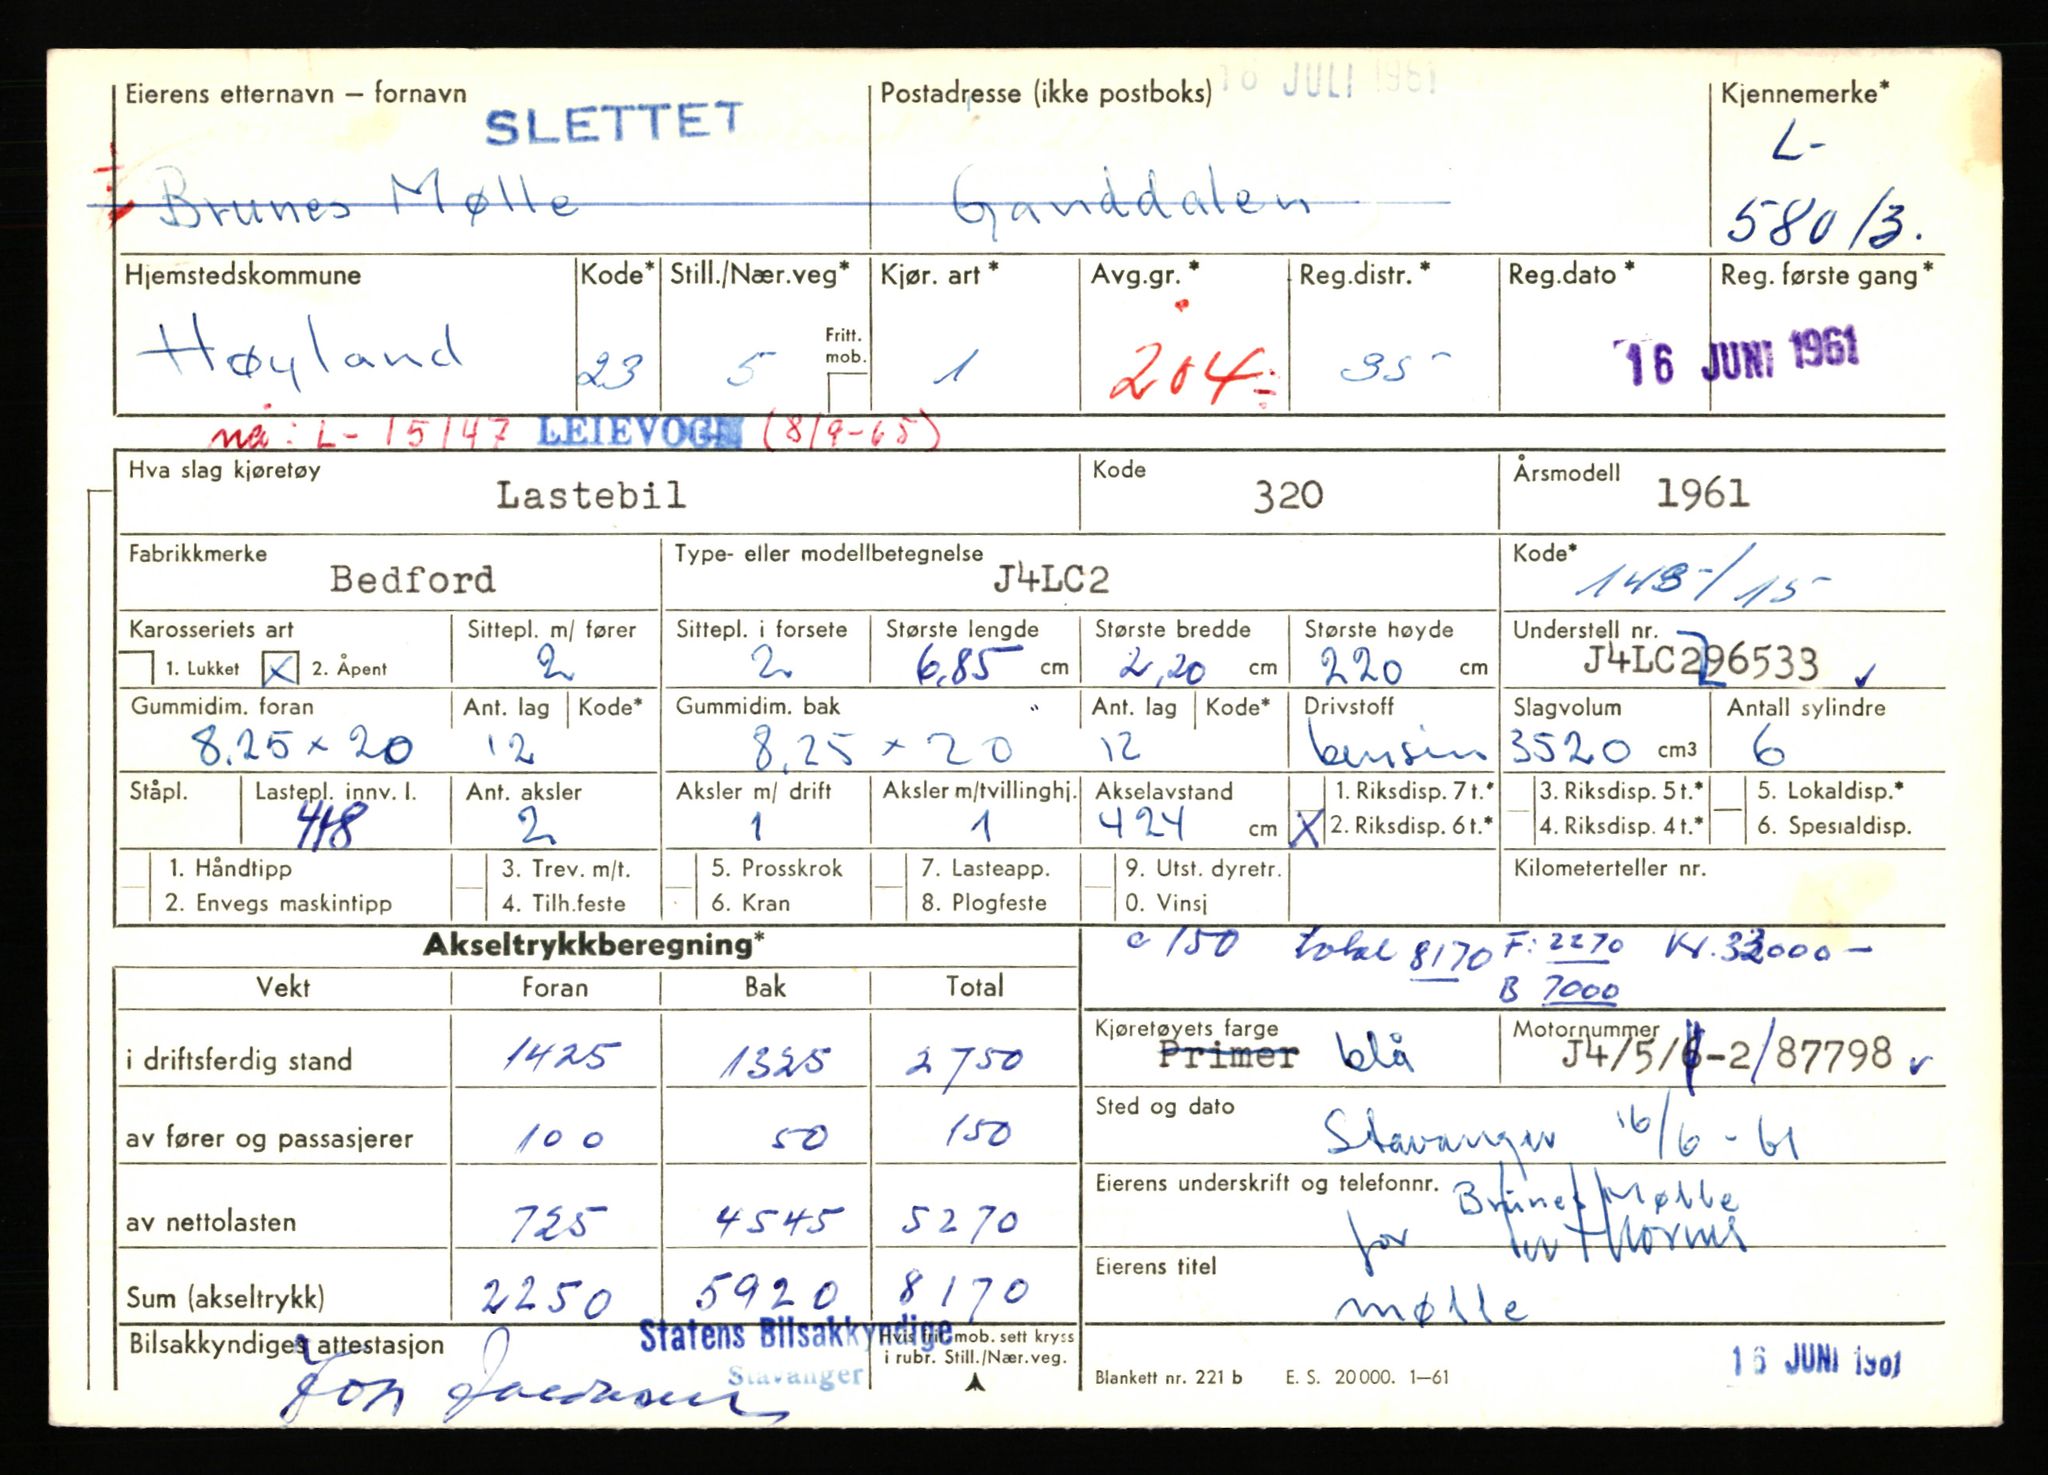 Eierens etternavn – fornavn
SLETTET
Brunes Mølle
Postadresse (ikke postboks)
16 JULI 1961
Ganddalen
Kjennemerke*
L-
58013.
Hjemstedskommune
Høyland
Kode*
23
Still./Nær.veg*
5
Fritt.
mob.
Kjør. art*
1
Avg.gr.*
204
Reg.distr.*
35-
Reg.dato*
Reg. første gang*
16 JUNI 1961
nå: L-15147 LEIEVOGN (8/9-65)
Hva slag kjøretøy
Lastebil
Kode
320
Årsmodell
1961
Fabrikkmerke
Bedford
Type- eller modellbetegnelse
J4LC2
Kode*
143-/15-
Karosseriets art
1. Lukket X 2. Åpent
Sittepl. m/ fører
2
Sittepl. i forsete
2
Største lengde
6,85 cm
Største bredde
2,20 cm
Største høyde
220 cm
Understell nr.
J4LC296533
Gummidim. foran
8.25 x 20
Ant. lag
12
Kode*
Gummidim. bak
8.25 x 20
Ant. lag
12
Kode*
Drivstoff
bensin
Slagvolum
3520 cm3
Antall sylindre
6
Ståpl.
Lastepl. innv. l.
418
Ant. aksler
2
Aksler m/ drift
1
Aksler m/tvillinghj.
1
Akselavstand
424 cm
1. Riksdisp. 7 t.*
X 2. Riksdisp. 6 t.*
3. Riksdisp. 5 t.*
4. Riksdisp. 4 t.*
5. Lokaldisp.*
6. Spesialdisp.
1. Håndtipp
2. Envegs maskintipp
3. Trev. m/t.
4. Tilh.feste
5. Prosskrok
6. Kran
7. Lasteapp.
8. Plogfeste
9. Utst. dyretr.
0. Vinsj
Kilometerteller nr.
Akseltrykkberegning*
c 150 total 8170 F: 2270 Kr. 32000-
B 7000
Vekt Foran Bak Total
i driftsferdig stand 1425 1325 2750
av fører og passasjerer 100 50 150
av nettolasten 725 4545 5270
Sum (akseltrykk) 2250 5920 8170
Kjøretøyets farge
Primer blå
Motornummer
J4/5/6-2/87798
Sted og dato
Stavanger 16/6-61
Eierens underskrift og telefonnr.
Brunes Mølle
for
Eierens titel
mølle
Bilsakkyndiges attestasjon
Statens Bilsakkyndige
Stavanger
Hvis fritt mob. sett kryss
i rubr. Still./Nær.veg.
Blankett nr. 221 b E. S. 20 000. 1–61
16 JUNI 1961